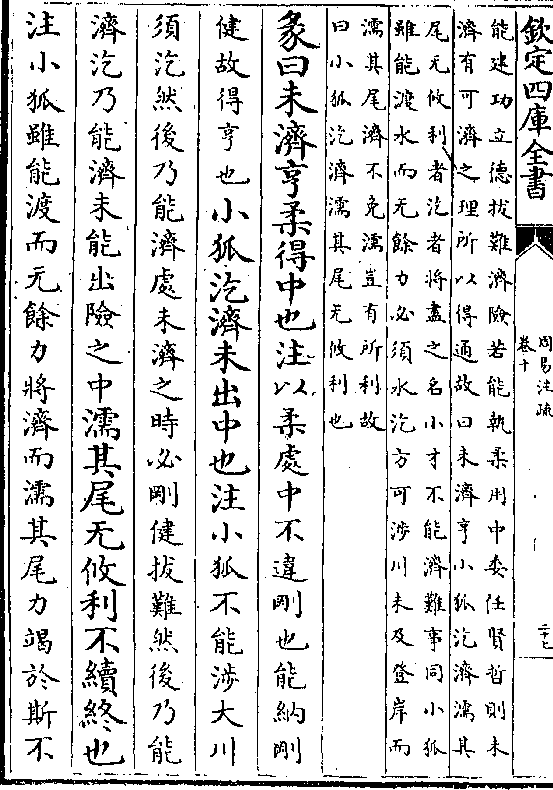 欽定四庫全書
周易注疏
卷十
二十七
能建功立德拔難濟險若能執柔用中委任賢哲則未
濟有可濟之理所以得通故曰未濟亨小狐汔濟濡其
尾无攸利者汔者將盡之名小才不能濟難事同小狐
雖能渡水而无餘力必須水汔方可涉川未及登岸而
濡其尾濟不免濡豈有所利故
曰小狐汔濟濡其尾无攸利也
彖曰未濟亨柔得中也注以柔處中不違剛也能納剛
健故得亨也小狐汔濟未出中也注小狐不能涉大川
須汔然後乃能濟處未濟之時必剛健拔難然後乃能
濟汔乃能濟未能出險之中濡其尾无攸利不續終也
注小狐雖能渡而无餘力將濟而濡其尾力竭於斯不